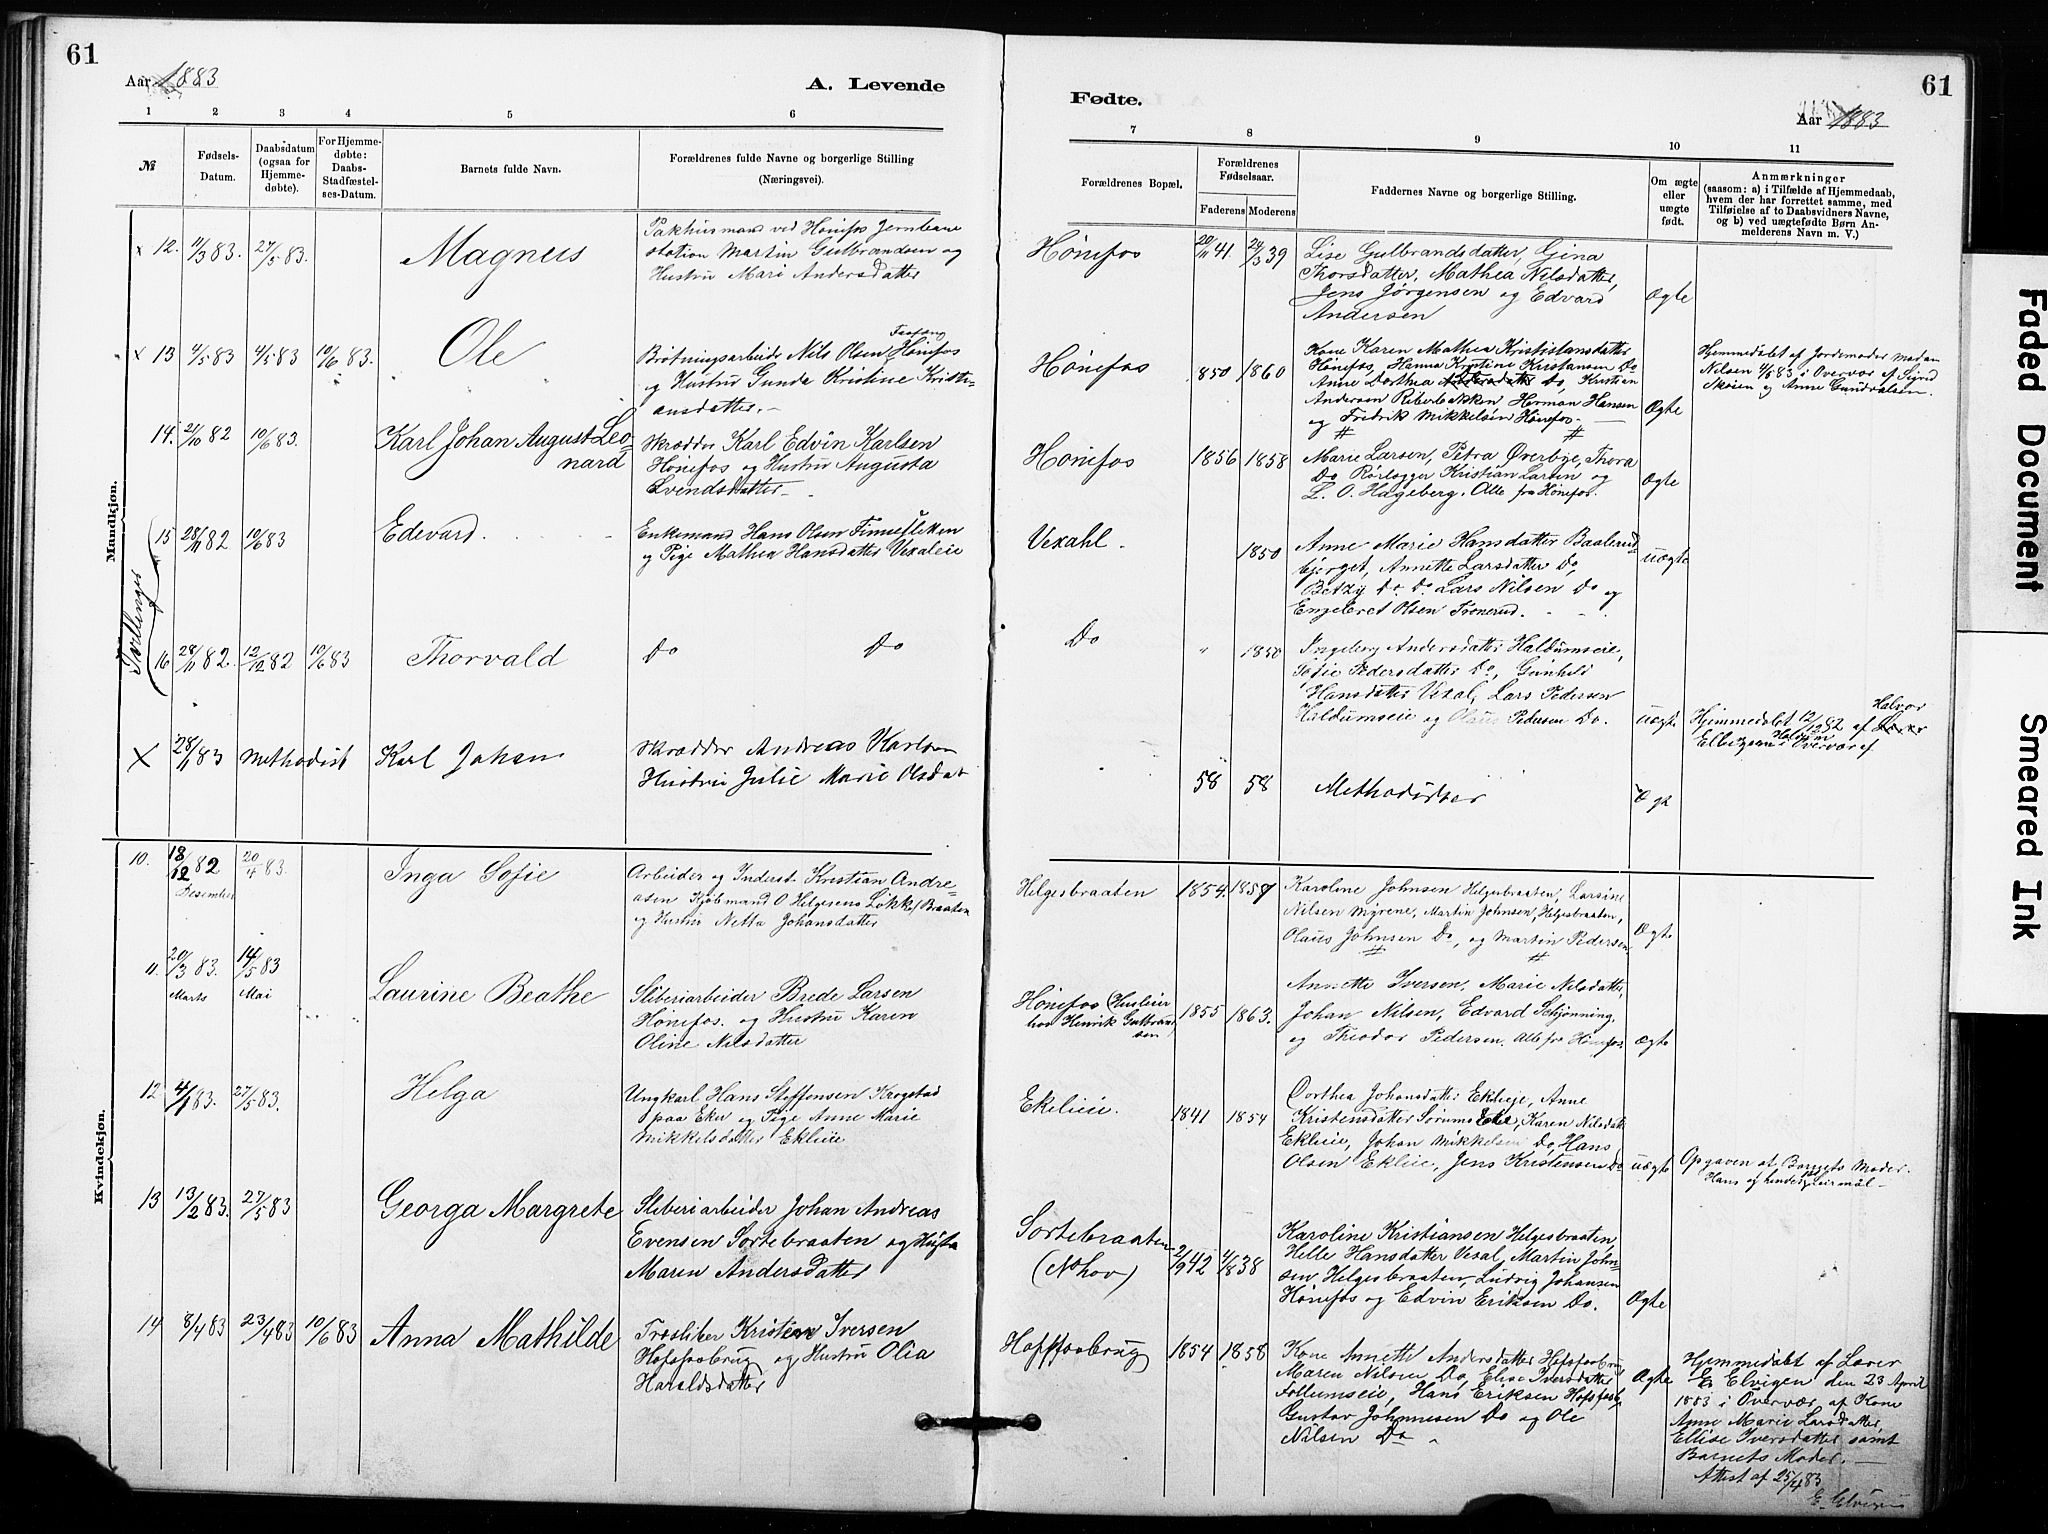 61
Aar 1883
A. Levende
1 2 3 4 5 6
№
Fødsels-Datum.
Daabsdatum (ogsaa for Hjemmedøbte).
For Hjemmedøbte: Daabs-Stadfæstelses-Datum.
Barnets fulde Navn.
Forældrenes fulde Navne og borgerlige Stilling
(Næringsvei).
Mandkjøn.
12. 11/3 83. 27/5 83. Magnus
Pakhusmand ved Hønefos Jernbane
station Martin Gulbrandsen og
Hustru Mari Andersdatter
13 4/5 83 4/5 83 10/6 83. Ole
Brøtningsarbeider Nils Olsen Hønefos
og Hustru Gunda Kristine Kristi-
ansdatter.
14. 2/10 82 10/6 83. Karl Johan August Leo-
nard
Skrædder Karl Edvin Karlsen
Hønefos og Hustru Augusta
Svendsdatter
Tvillinger
15 28/11 82 10/6 83 Edevard.
Enkemand Hans Olsen
og Pige Mathea Hansdatter Vexaleie
16 28/11 82. 12/12 82 10/6 83 Thorvald
Do Do
X 28/1 83 Methodist Karl Johan
Skrædder Andreas Karlsen
Hustru Julie Marie Olsdat
Kvindekjøn.
10. 18/12 82 20/4 83. Inga Sofie
Desember
Arbeider og Inderst Kristian Andre-
asen Kjøbmand O Helgesens Løkke Braaten
og Hustru Netta Johansdatter
11. 20/3 83. 14/5 83 Laurine Beathe
Marts Mai
Sliberiarbeider Brede Larsen
Hønefos. og Hustru Karen
Oline Nilsdatter
12 4/1 83. 27/5 83. Helga
Ungkarl Hans Steffensen Krogstad
paa Eker og Pige Anne Marie
Mikkelsdatter Ekleie
13 13/2 83. 27/5 83 Georga Margrete
Sliberiarbeider Johan Andreas
Evensen Sortebraaten og Hustru
Maren Andersdatter
14 8/4 83 23/4 83 10/6 83 Anna Mathilde
Træsliber Kristian Iversen
Hofsfosbrug og Hustru Olia
Haraldsdatter
61
Fødte.
Aar 1883
7 8 9 10 11
Forældrenes Bopæl.
Forældrenes Fødselsaar.
Faderens Moderens
Faddernes Navne og borgerlige Stilling.
Om ægte eller uægte født.
Anmærkninger
(saasom: a) i Tilfælde af Hjemmedaab,
hvem der har forrettet samme, med
Tilføielse af to Daabsvidners Navne,
og b) ved uægtefødte Børn An-
melderens Navn m. V.)
Hønefos 20/11 41. 24/3 39
Lise Gulbrandsdatter, Gina
Thorsdatter, Mathea Nilsdatter,
Jens Jørgensen og Edvard
Andersen
Ægte
Hønefos 1850 1860
Kone Karen Mathea Kristiansdatter
Hønefos, Hanna Kristine Kristiansen Do
Anne Dorthea Do, Kristian
Andersen Herman Hansen
og Fredrik Mikkelsen Hønefos.
Ægte
Hjemmedøbt af Jordemoder Madam
Nilsen 4/5 83 i Overvær af Sigrid
Skøien og Anne Gundersen.
Hønefos 1856 1858
Marie Larsen, Petra Øverbye, Thora
Do Rørlægger Kristian Larsen og
L. O. Hageberg. Alle fra Hønefos.
Ægte
Vexahl. 1850
Anne Marie Hansdatter Baalerud-
bjerget, Annette Larsdatter Do,
Betzy Do. Do. Lars Nilsen Do og
Engebret Olsen
uægte
Do " 1850
Ingeborg Andersdatter Haldumseie,
Sofie Pedersdatter Do, Gunhild
Hansdatter Vexal, Lars Pedersen
Haldumseie og Olaus Pedersen Do.
uægte
Halvor
Hjemmedøbt 12/12 82 af
i Overvær af
58 58 Methodister Ægt
Helgesbraaten 1854. 1857
Karoline Johnsen Helgesbraaten, Larsine
Nilsen Myrene, Martin Johnsen, Helgesbraaten,
Olaus Johnsen Do, og Martin Pedersen
Ægte
Hønefos (Husleier
hos Henrik Gulbrand-
sen) 1855 1863.
Annette Iversen, Marie Nilsdatter,
Johan Nilsen, Edvard Schjønning,
og Theodor Pedersen. Alle fra Hønefos
Ægte
Ekeleie. 1841 1854
Dorthea Johansdatter Ekleie, Anne
Kristensdatter Sørum Eke, Karen Nilsdatter
Ekleie, Johan Mikkelsen Do, Hans
Olsen Ekleie, Jens Kristensen Do
uægte
Opgaven at Barnets Moder.
Hans og hendes
Sortebraaten
(N. hov) 2/9 42 4/8 38
Karoline Kristiansen Helgesbraaten
Helle Hansdatter Vexal, Martin John-
sen Helgesbraaten, Ludvig Johansen
Hønefos og Edvin Eriksen Do.
Ægte
Hofsfosbrug 1854 1858
Kone Annette Andersdatter Hofsfosbrug
Maren Nilsen Do, Elise Iversdatter
Follumseie, Hans Eriksen Hofsfosb
Gustav Johannesen Do og Ole
Nilsen Do
Ægte
Hjemmedøbt af Lærer
E. Elvigen den 23 April
1883 i Overvær af Kone
Anne Marie Larsdatter,
Ellise Iversdatter samt
Barnets Moder.
Attest af 25/4 83
E. Elvigen
Faded Document
Smeared Ink